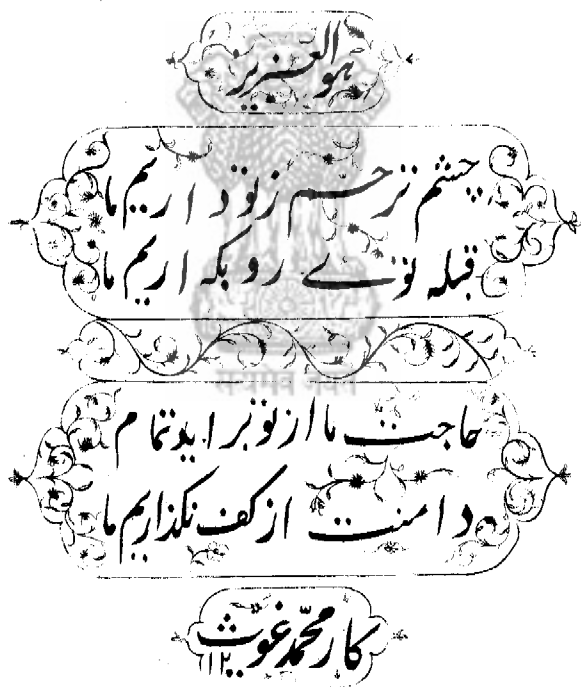 ہو العزیز
چشم ترحم ز تو داریم ما
قبله توے رو بکه اریم ما
حاجت ما از تو براید تمام
دامنت از کف نگذاریم ما
کار محمّد غوث
۱۲
सत्यमेव जयते